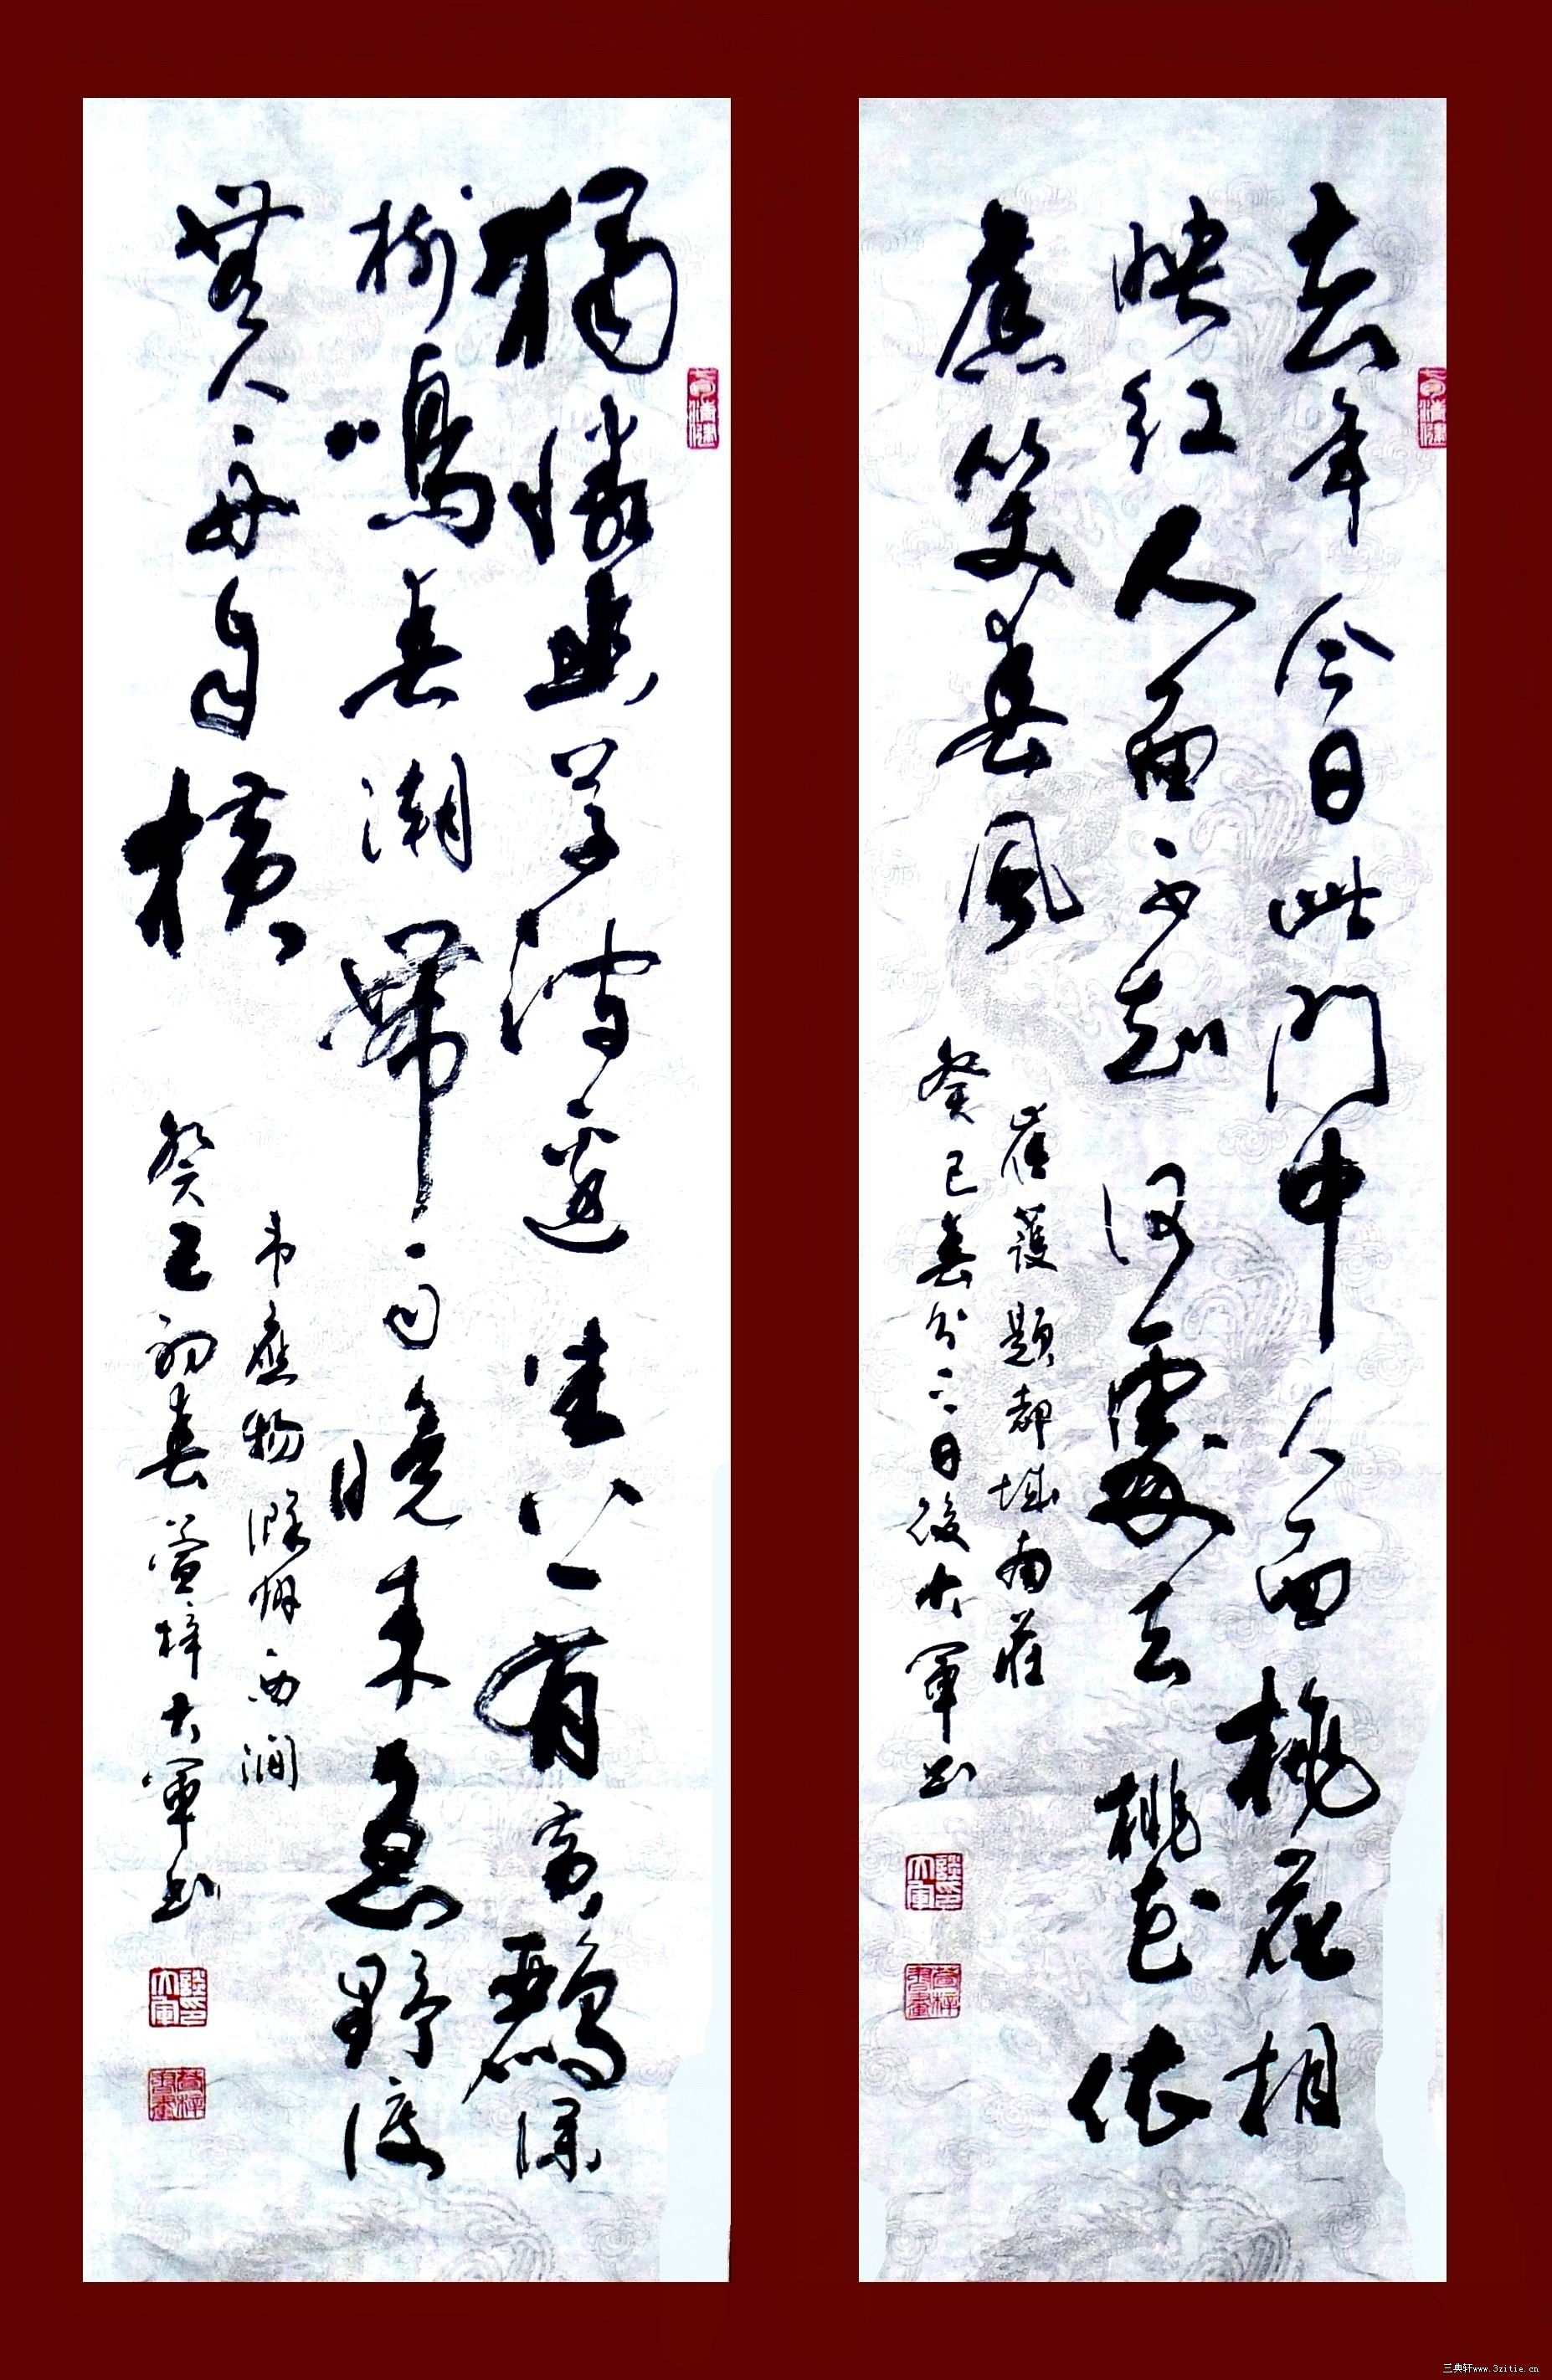 去年今日此門中人面桃花相
映紅人面不知何處去桃花依
舊笑春風
崔護題都城南莊
癸巳春分二日後大軍書
獨憐幽草澗邊生上有黃鸝深
樹鳴春潮帶雨晚來急野渡
無人舟自橫
韋應物滁州西澗
癸巳初春萱梓大軍書
萱梓書畫
萱梓書畫
三典轩www.3zitie.cn